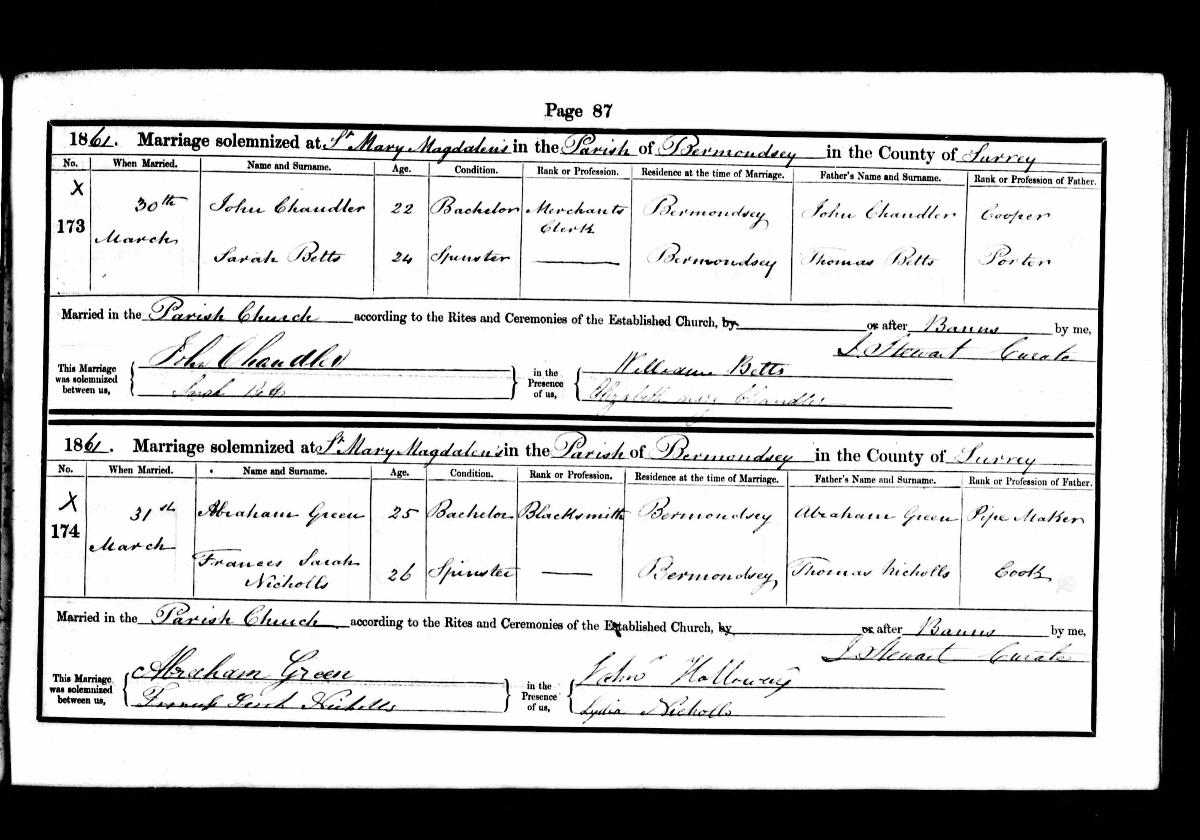 Page 87
1861. Marriage solemnized at St Mary Magdalen's in the Parish of Bermondsey in the County of Surrey
No. When Married. Name and Surname. Age. Condition. Rank or Profession. Residence at the time of Marriage. Father's Name and Surname. Rank or Profession of Father.
X
173 30th John Chandler 22 Bachelor Merchants Bermondsey John Chandler Cooper
Clerk
March
Sarah Betts 24 Spinster Bermondsey Thomas Betts Porter
Married in the Parish Church according to the Rites and Ceremonies of the Established Church, by or after Banns by me,
J. Stewart Curate
This Marriage was solemnized between us, John Chandler in the Presence of us, William Betts
Sarah Betts Elizabeth Mary Chandler
1861. Marriage solemnized at St Mary Magdalen's in the Parish of Bermondsey in the County of Surrey
No. When Married. Name and Surname. Age. Condition. Rank or Profession. Residence at the time of Marriage. Father's Name and Surname. Rank or Profession of Father.
X
174 31st Abraham Green 25 Bachelor Blacksmith Bermondsey Abraham Green Pipe Maker
March
Frances Sarah
Nicholls 26 Spinster Bermondsey Thomas Nicholls Cook
Married in the Parish Church according to the Rites and Ceremonies of the Established Church, by or after Banns by me,
J. Stewart Curate
This Marriage was solemnized between us, Abraham Green in the Presence of us, John Holloway
Nicholls Lydia Nicholls